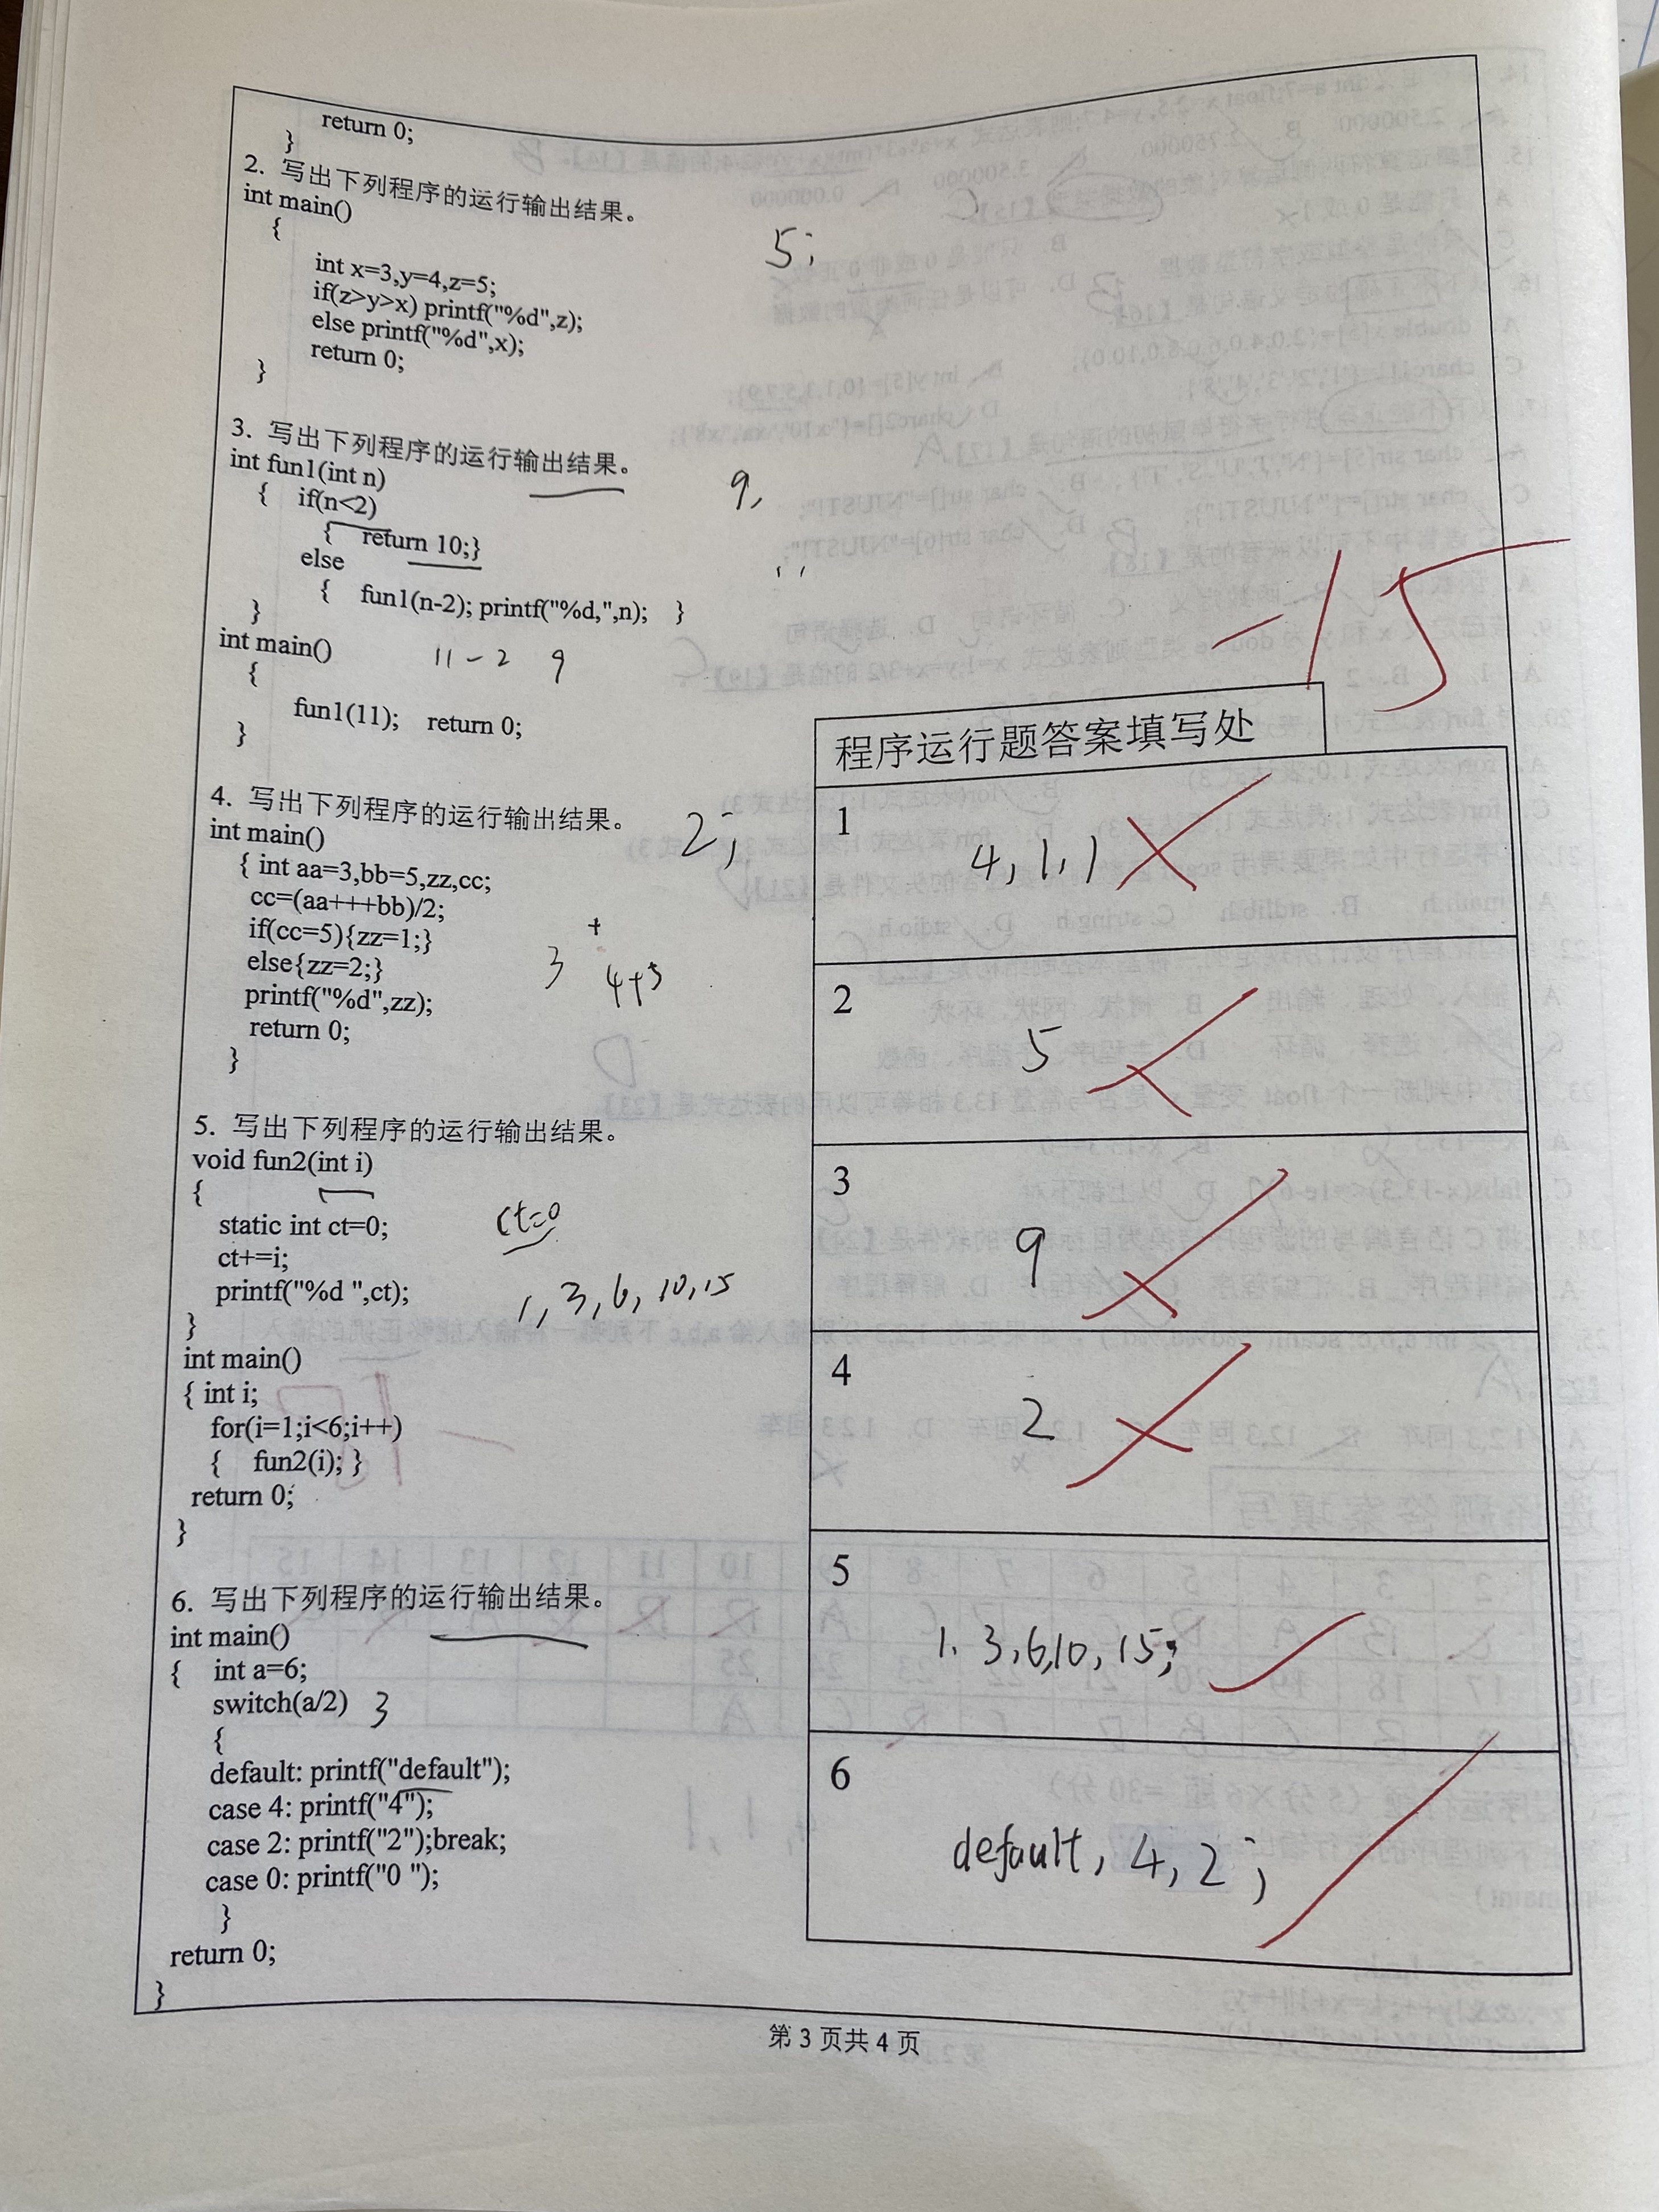 return 0;
}
2. 写出下列程序的运行输出结果。
int main()
{
int x=3,y=4,z=5;
if(z>y>x) printf("%d",z);
else printf("%d",x);
return 0;
}
5;
3. 写出下列程序的运行输出结果。
int fun1(int n)
{ if(n<2)
{ return 10;}
else
{ fun1(n-2); printf("%d,",n); }
}
9,
int main()
11-2 9
{
fun1(11); return 0;
}
-15
4. 写出下列程序的运行输出结果。
2;
int main()
{ int aa=3,bb=5,zz,cc;
cc=(aa+++bb)/2;
if(cc=5){zz=1;}
else{zz=2;}
printf("%d",zz);
return 0;
}
+
3 4+5
5. 写出下列程序的运行输出结果。
void fun2(int i)
{
static int ct=0;
ct+=i;
printf("%d ",ct);
}
ct=0
1, 3, 6, 10, 15
int main()
{ int i;
for(i=1;i<6;i++)
{ fun2(i); }
return 0;
}
6. 写出下列程序的运行输出结果。
int main()
{ int a=6;
switch(a/2) 3
{
default: printf("default");
case 4: printf("4");
case 2: printf("2");break;
case 0: printf("0 ");
}
return 0;
}
程序运行题答案填写处
1
4, 1, 1
2
5
3
9
4
2
5
1, 3, 6, 10, 15;
6
default, 4, 2;
第 3 页共 4 页